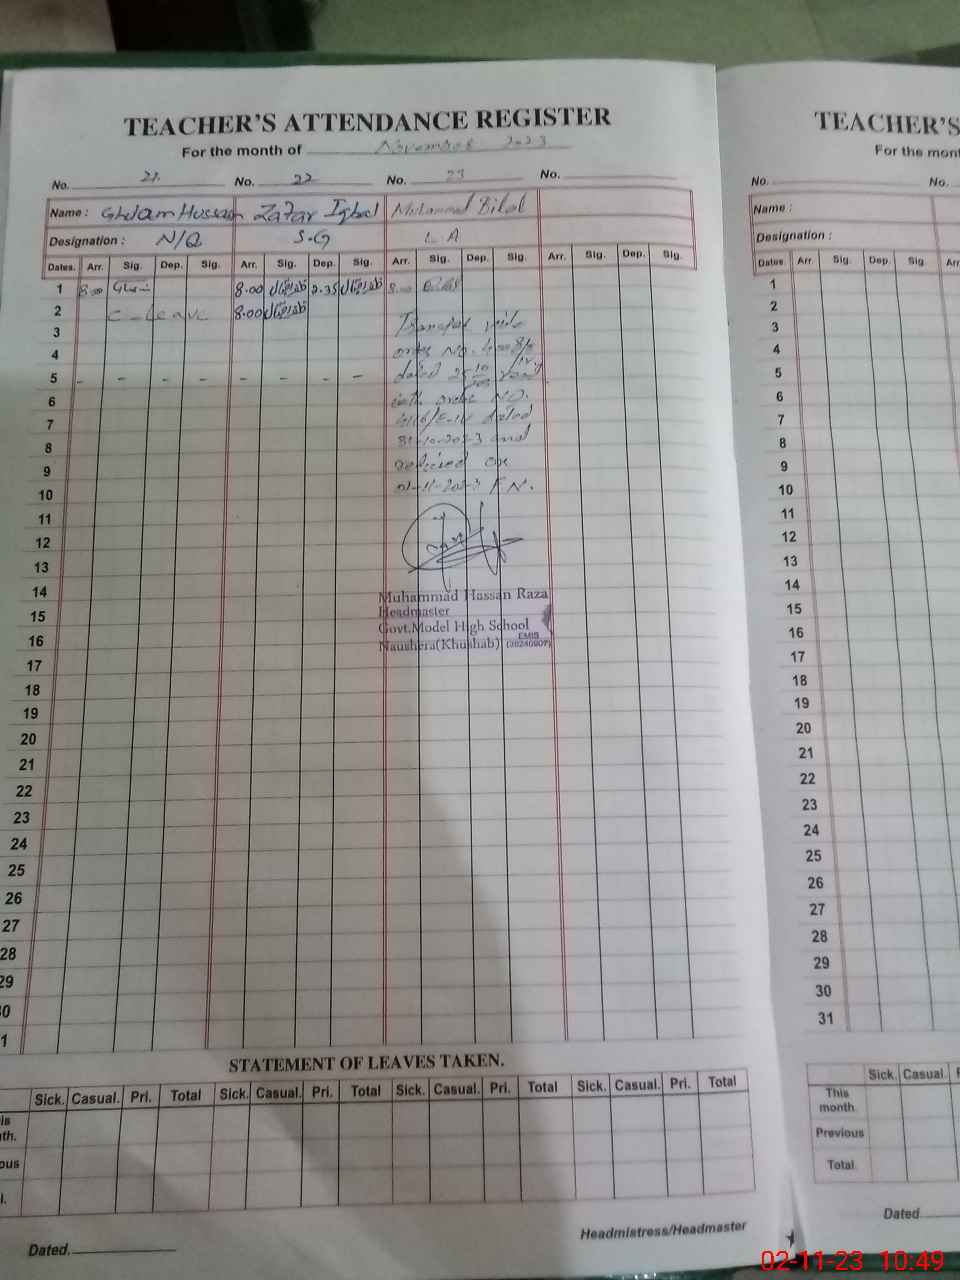 TEACHER'S ATTENDANCE REGISTER
For the month of November 2023
No. 21. No. 22 No. 23 No.
Name : Ghulam Hussain Zafar Iqbal Muhammad Bilal
Designation : N/Q S.G L.A
Dates. Arr. Sig. Dep. Sig. Arr. Sig. Dep. Sig. Arr. Sig. Dep. Sig. Arr. Sig. Dep. Sig.
1 8.00 8.00 ظفر اقبال 2.35 ظفر اقبال 8.00
2 C-leave 8.00 ظفر اقبال
3 Transfer vide
4 order No.
5 - - - - - - - - dated 25
6 order NO.
7 dated
8 31-10-2023 and
9 relieved on
10 01-11-2023 F.N.
11
12
13
14
15
16
17
18
19
20
21
22
23
24
25
26
27
28
29
30
31
Muhammad Hassan Raza
Headmaster
Govt.Model High School
EMIS
Naushera(Khushab)
STATEMENT OF LEAVES TAKEN.
Sick. Casual. Pri. Total Sick. Casual. Pri. Total Sick. Casual. Pri. Total Sick. Casual. Pri. Total
Dated.
Headmistress/Headmaster
TEACHER'S
For the mon
No. No.
Name :
Designation :
Dates Arr. Sig. Dep. Sig. Arr
1
2
3
4
5
6
7
8
9
10
11
12
13
14
15
16
17
18
19
20
21
22
23
24
25
26
27
28
29
30
31
Sick. Casual.
This
month.
Previous
Total.
Dated.
02-11-23 10:49